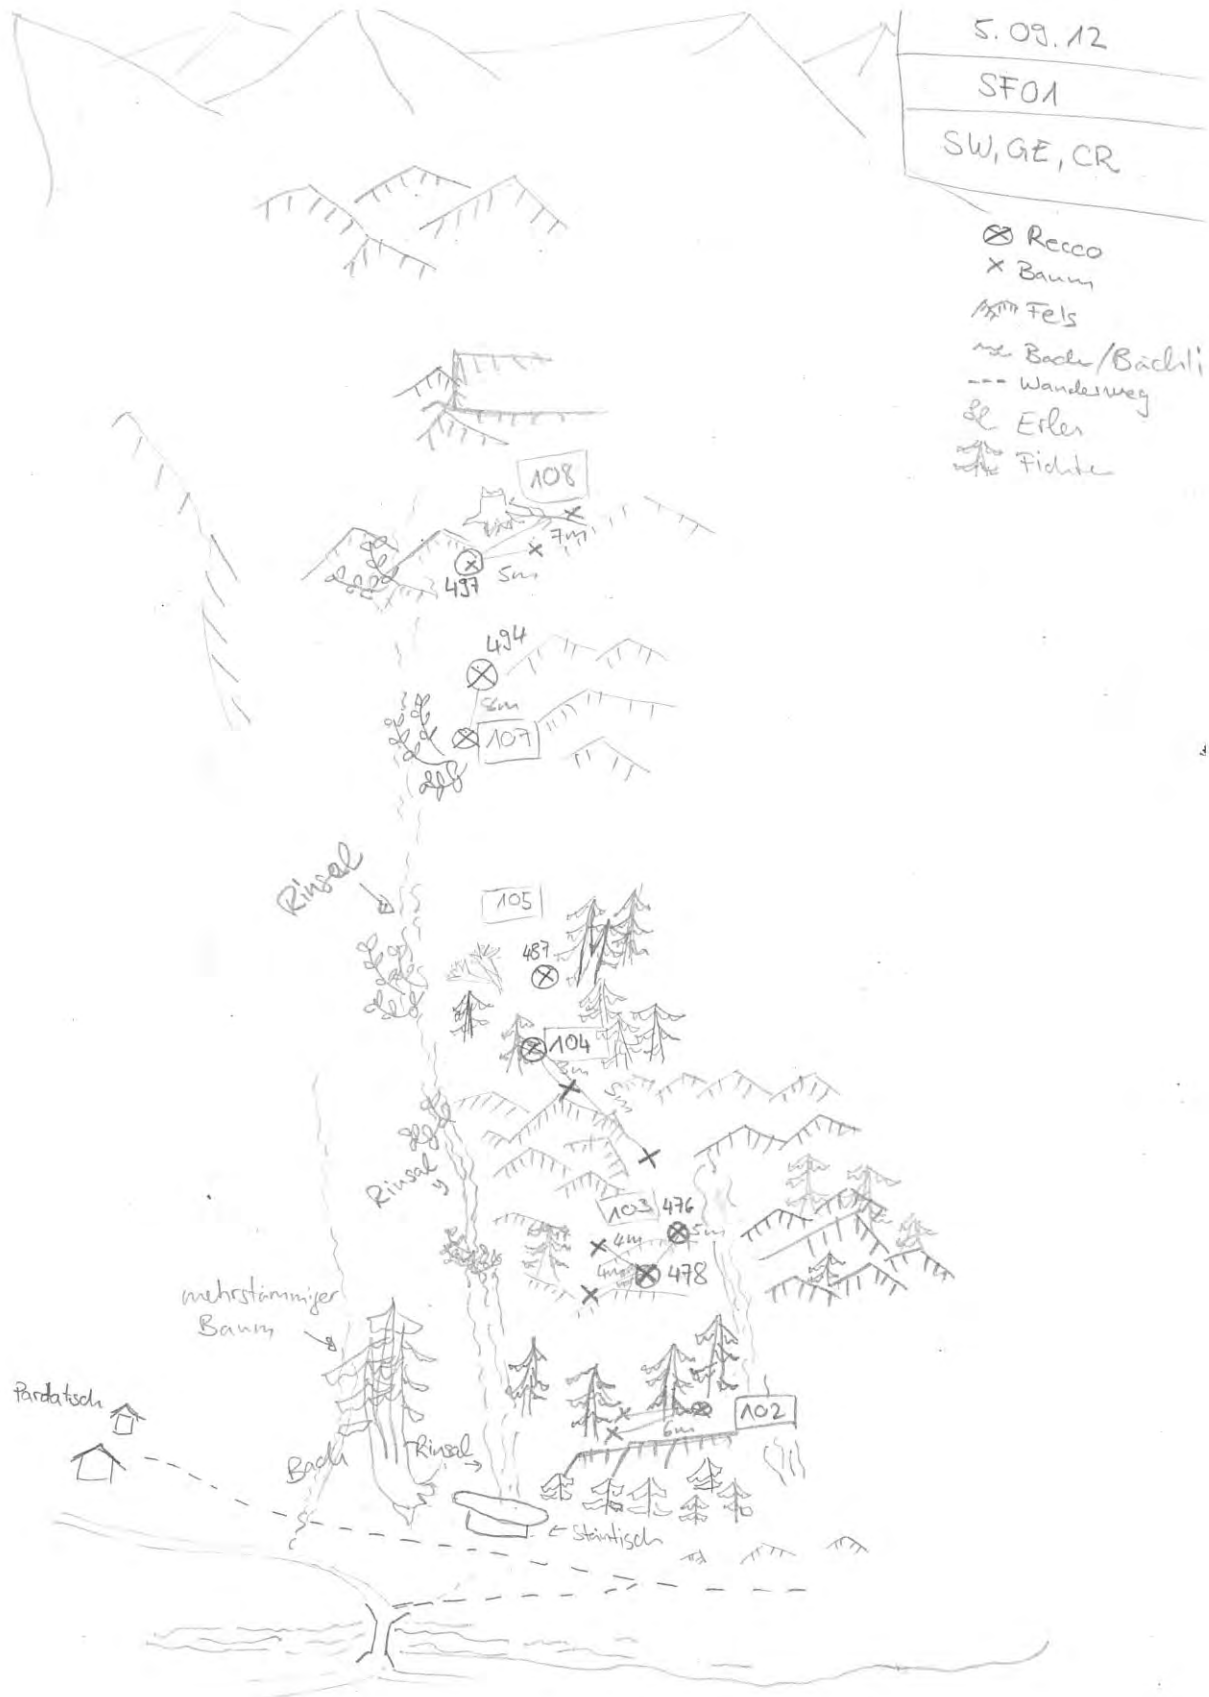 5.09.12
SF01
SW, GE, CR
Recco
Baum
Fels
Bach/Bächli
Wanderweg
Erlen
Fichten
108
7m
5m
497
494
8m
107
Rinsal
105
487
104
3m
5m
Rinsal
103
476
4m
5m
4m
478
mehrstämmiger
Baum
Pardatsch
102
6m
Bach
Rinsal
Steintisch